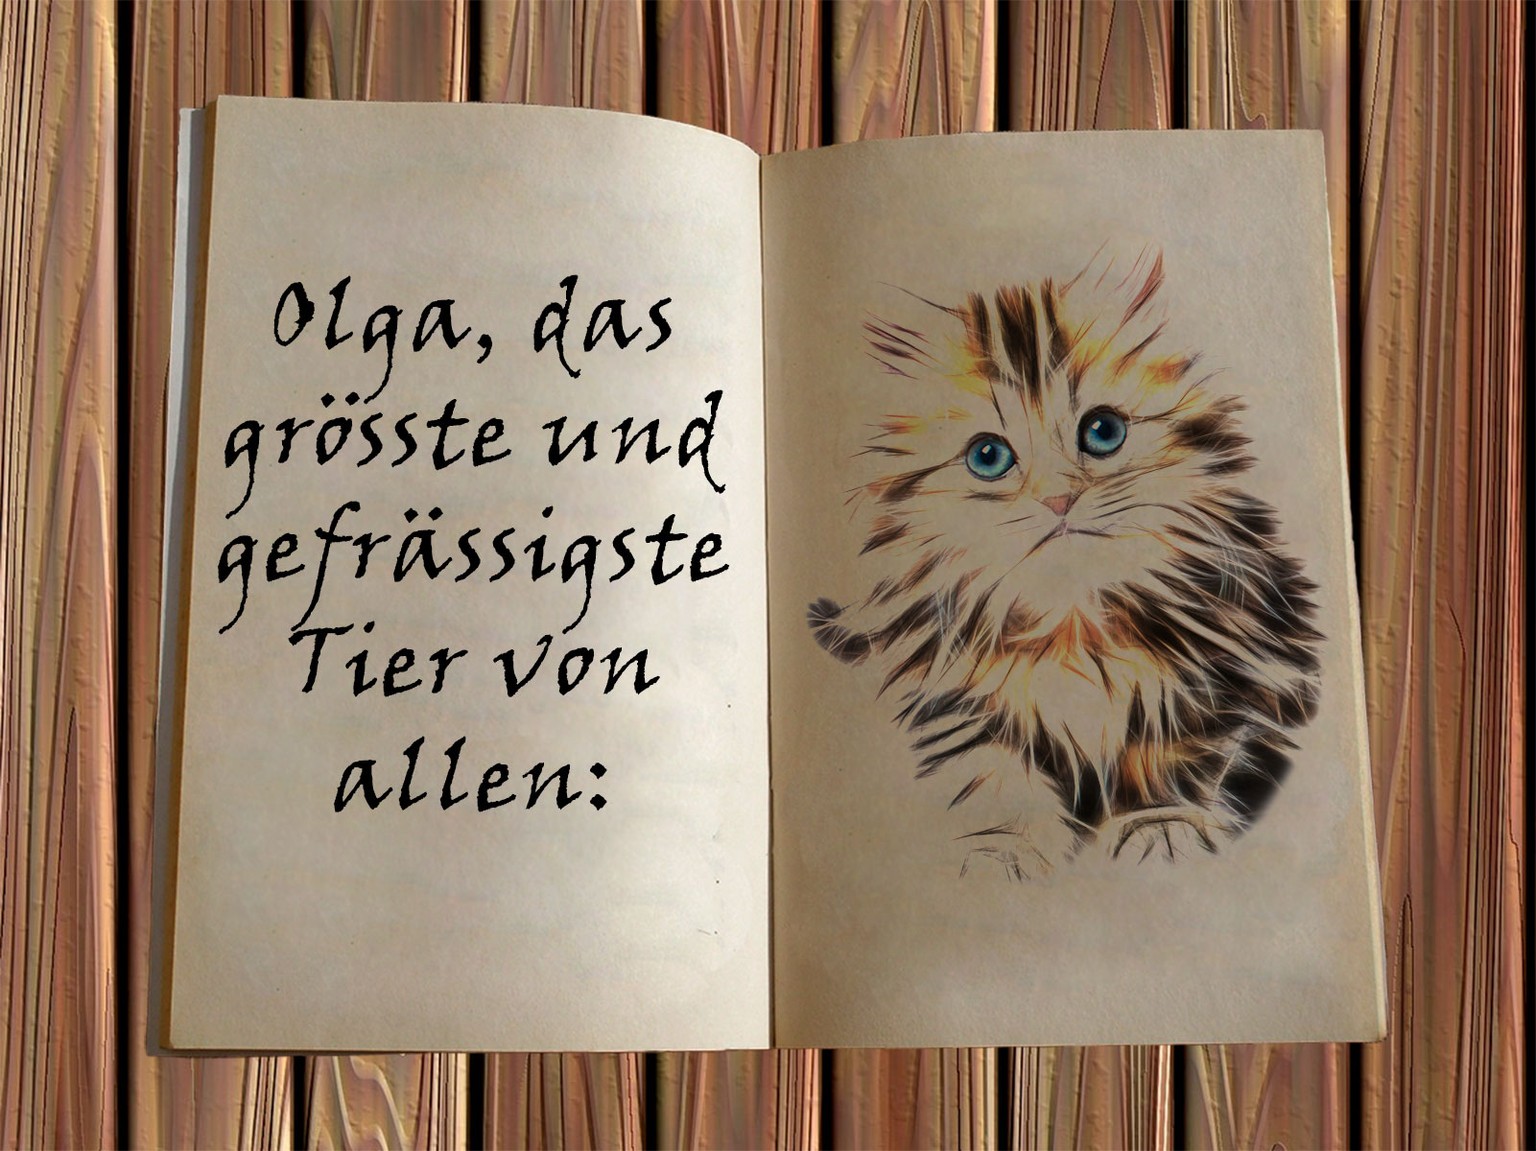 Olga, das
grösste und
gefrässigste
Tier von
allen: